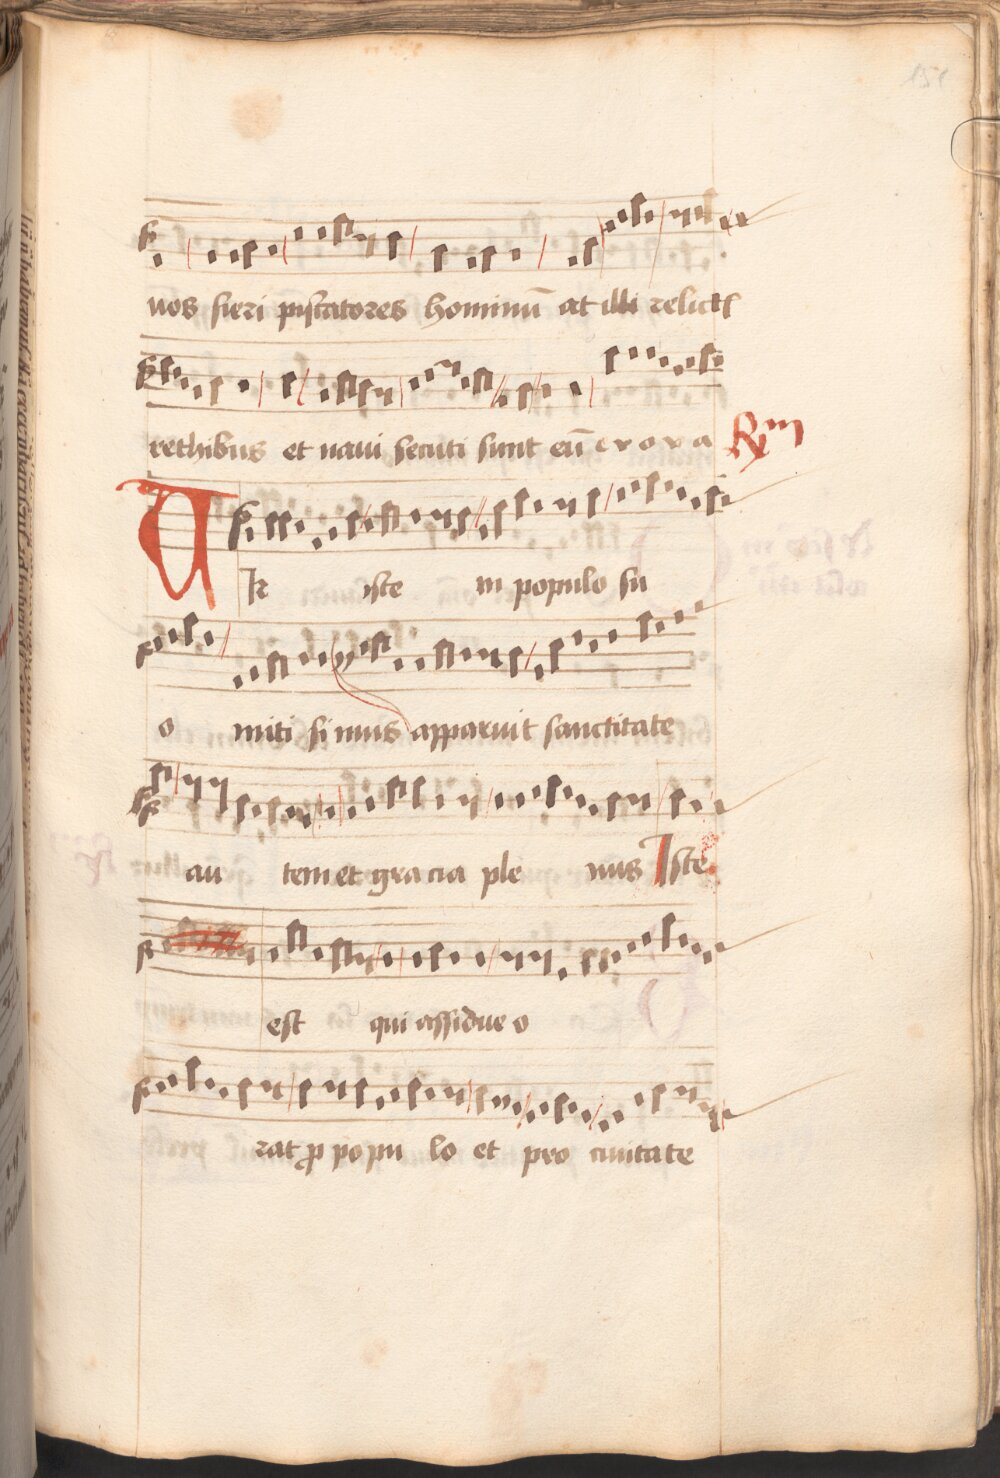 151
vos fieri piscatores hominū at illi relictis
rethibus et navi secuti sunt eū e v o v a R̄m
VIR iste in populo su
o miti si mus apparuit sanctitate
au tem et gracia ple nus Iste
est qui assidue o
rat p̱ popu lo et pro civitate